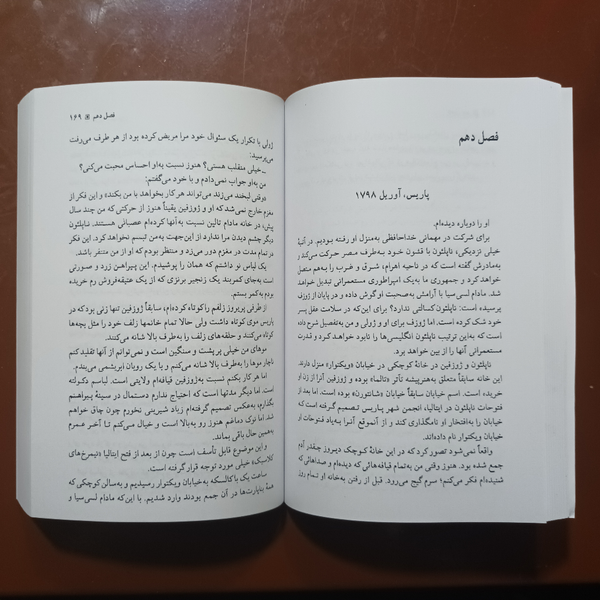 فصل دهم
پاریس، آوریل ۱۷۹۸
او را دوباره دیده‌ام.
برای شرکت در مهمانی خداحافظی به‌منزل او رفته بودیم. در آتیهٔ
خیلی نزدیکی، ناپلئون با قشون خود به‌طرف مصر حرکت می‌کند و
به‌مادرش گفته است که در ناحیه اهرام، شرق و غرب را به‌هم متصل
خواهد کرد و جمهوری ما به‌یک امپراطوری مستعمراتی تبدیل خواهد
شد. مادام لتی‌سیا با آرامش به‌صحبت او گوش داده و در پایان از ژوزف
پرسیده است: ناپلئون کسالتی ندارد؟ برای این‌که در سلامت عقل پسر
خود شک کرده است. اما ژوزف برای او و ژولی و من به‌تفصیل شرح داده
است که به‌این ترتیب انگلیسی‌ها را نابود خواهد کرد و قدرت
مستعمراتی آنها را از بین خواهد برد.
ناپلئون و ژوزفین در خانهٔ کوچکی در خیابان «ویکتوار» منزل دارند.
این خانه سابقاً متعلق به‌هنرپیشه تأتر «تالما» بوده و ژوزفین آنرا از زن او
خریده است. اسم خیابان سابقاً خیابان «شانتورن» بوده است. اما بعد از
فتوحات ناپلئون در ایتالیا، انجمن شهر پاریس تصمیم گرفته است که
خیابان را به‌افتخار او نامگذاری کند و از آنموقع آنرا به‌یاد فتوحات او
خیابان ویکتوار نام داده‌اند.
واقعاً نمی‌شود تصور کرد که در این خانهٔ کوچک دیروز چقدر آدم
جمع شده بود. هنوز وقتی من به‌تمام قیافه‌هائی که دیده‌ام و صداهائی که
شنیده‌ام فکر می‌کنم؛ سرم گیج می‌رود. قبل از رفتن به‌خانه او تمام روز
فصل دهم ۱۶۹
ژولی با تکرار یک سئوال خود مرا مریض کرده بود از هر طرف می‌رفت
می‌پرسید:
ـ خیلی منقلب هستی؟ هنوز نسبت به‌او احساس محبت می‌کنی؟
من به‌او جواب نمی‌دادم و با خود می‌گفتم:
«وقتی لبخند می‌زند می‌تواند هر کار بخواهد با من بکند» و این فکر از
مغزم خارج نمی‌شد که او و ژوزفین یقیناً هنوز از حرکتی که من چند سال
پیش، در خانه مادام تالین نسبت به‌آنها کرده‌ام عصبانی هستند. ناپلئون
دیگر چشم دیدن مرا ندارد از این‌جهت به‌من تبسم نخواهد کرد. این فکر
در تمام مدت در مغزم دور می‌زد و منتظر بودم که او از من متنفر باشد.
یک لباس نو داشتم که همان را پوشیدم. این پیراهن زرد و صورتی
است به‌جای کمربند یک زنجیر برنزی که از یک عتیقه‌فروش رم خریده
بودم به‌کمر بستم.
از طرفی پریروز زلفم را کوتاه کرده‌ام، سابقاً ژوزفین تنها زنی بود که در
پاریس موی کوتاه داشت ولی حالا تمام خانمها زلف خود را مثل بچه‌ها
می‌زنند و حلقه‌های زلف را به‌طرف بالا شانه می‌کنند.
موهای من خیلی پرپشت و سنگین است و نمی‌توانم از آنها تقلید کنم
ناچار موها را به‌طرف بالا شانه می‌کنم و با یک روبان ابریشمی می‌بندم.
اما هر کار بکنم نسبت به‌ژوزفین قیافه‌ام ولایتی است. لباسم کوتاه
است. اما دیگر مدتها است که احتیاج ندارم دستمال در سینهٔ پیراهنم
بگذارم، به‌عکس تصمیم گرفته‌ام زیاد شیرینی نخورم چون چاق خواهم
شد اما نوک دماغم هنوز رو به‌بالا است و خیال می‌کنم تا آخر عمرم
به‌همین حال باقی بماند.
و این موضوع قابل تأسف است چون از بعد از فتح ایتالیا «نیمرخ‌های
کلاسیک» خیلی مورد توجه قرار گرفته است.
ساعت یک با کالسکه به‌خیابان ویکتوار رسیدیم و به‌سالن کوچکی که
همهٔ بناپارت‌ها در آن جمع بودند وارد شدیم. با این‌که مادام لتی‌سیا و